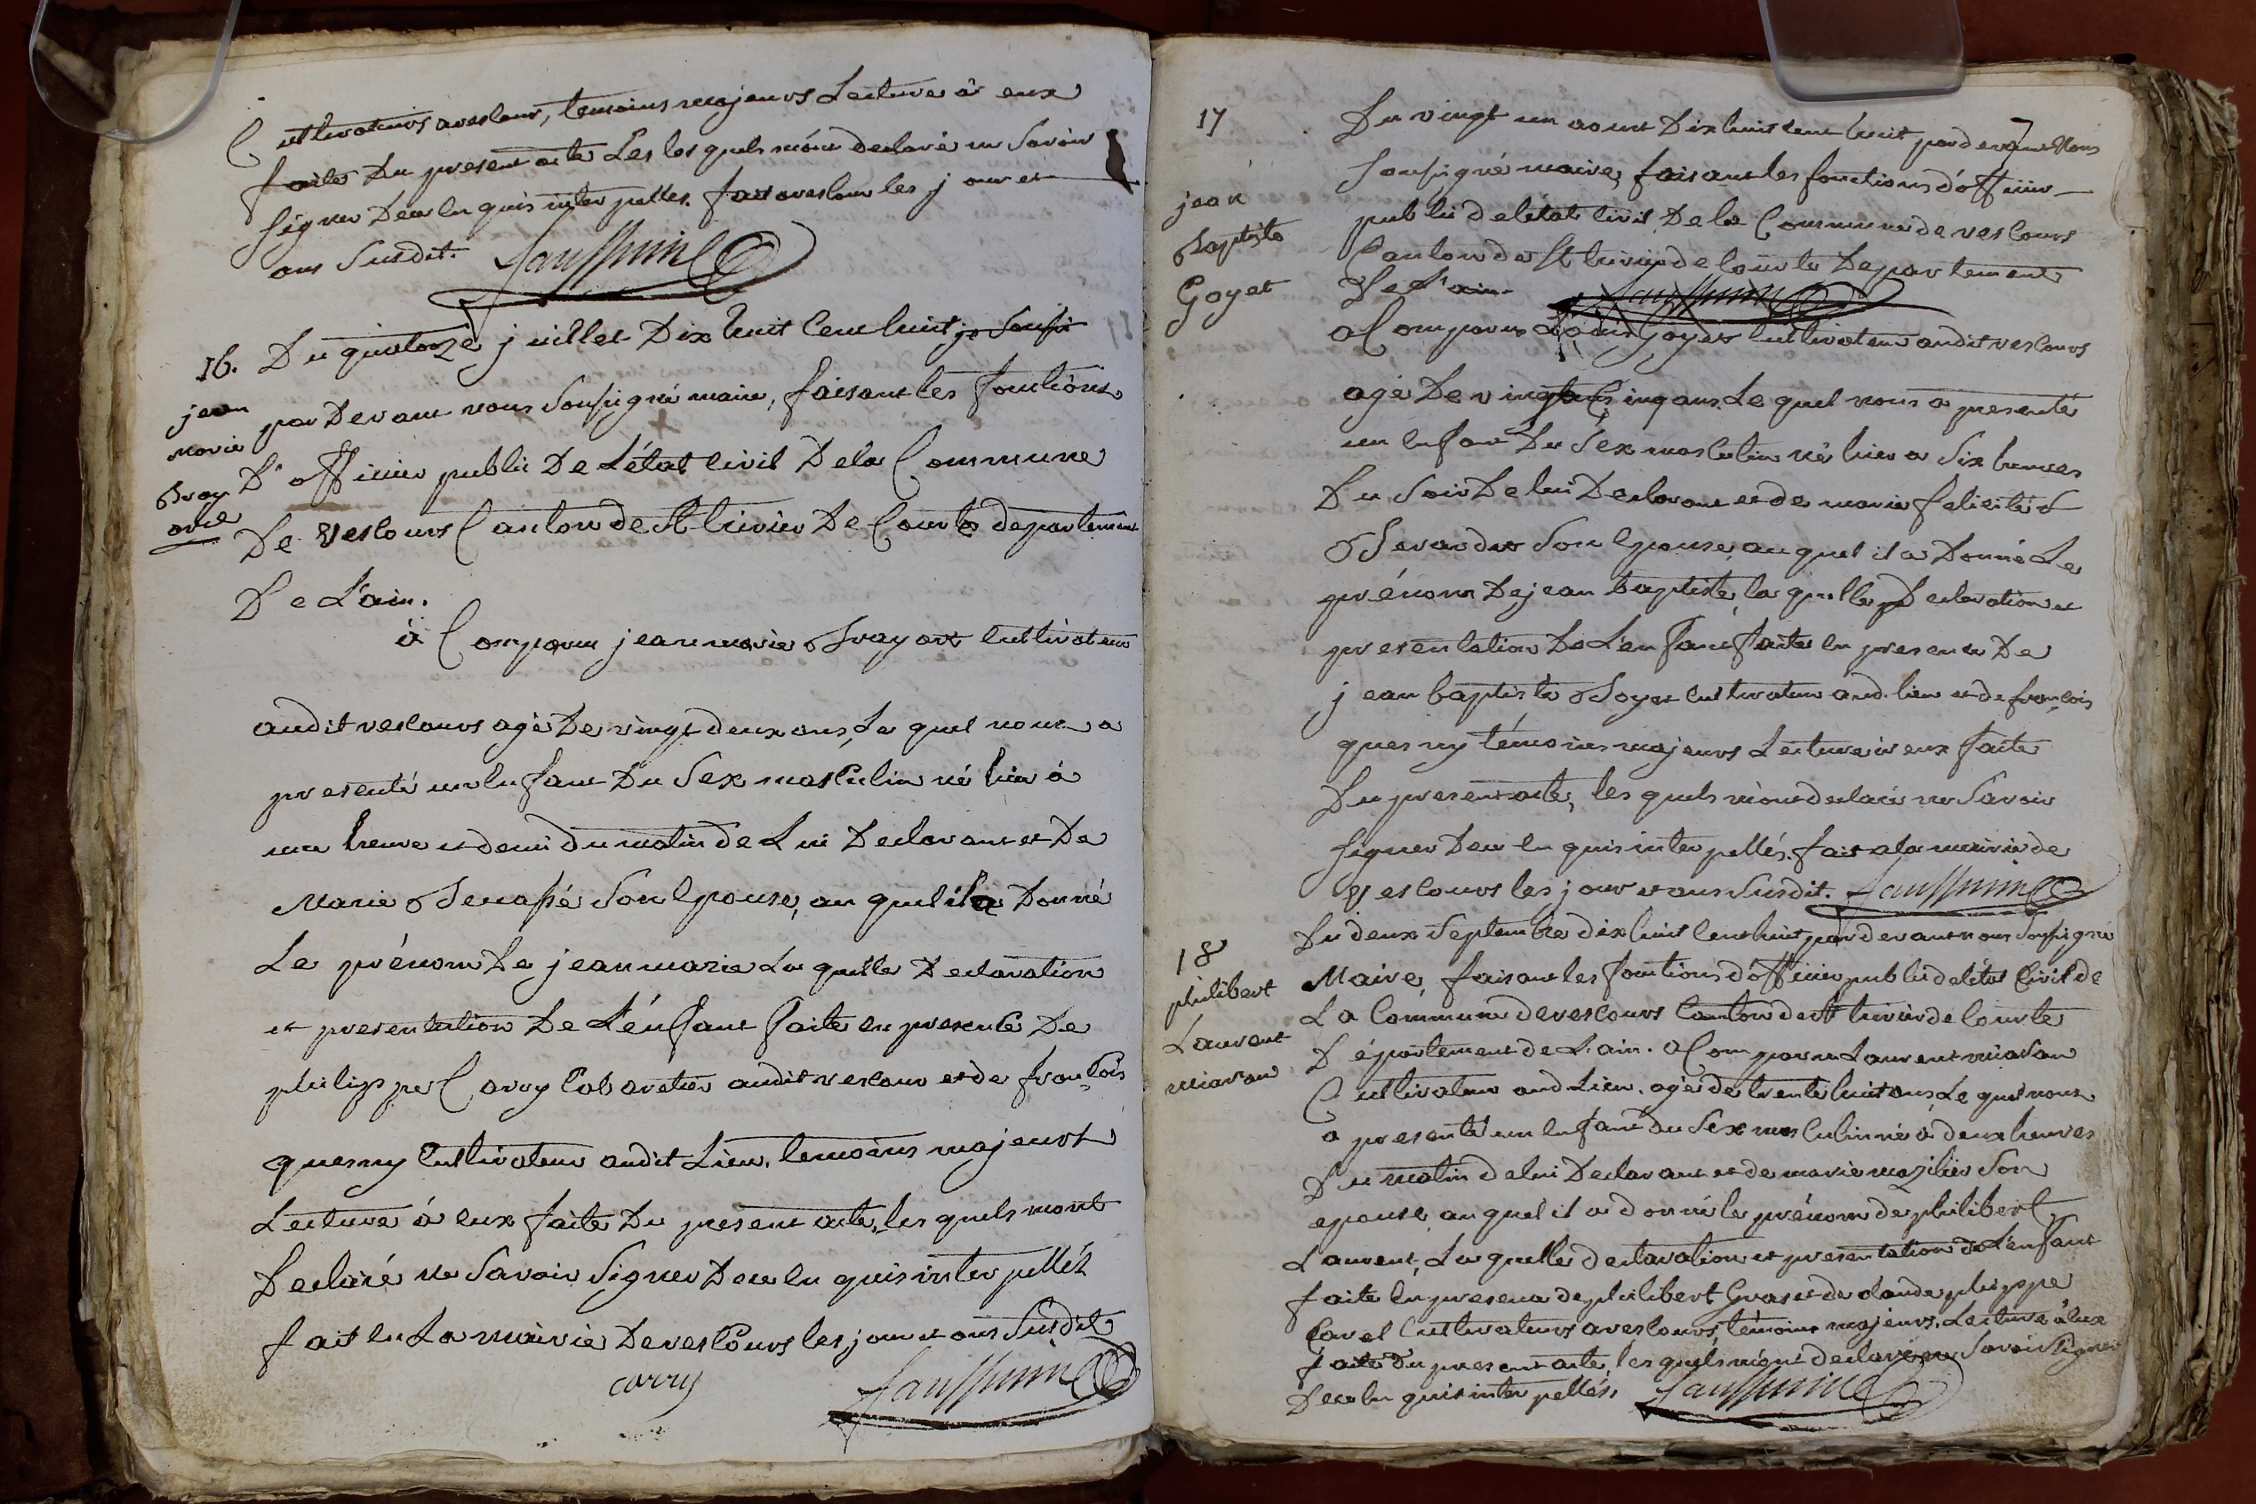 Cultivateurs avescour, temoins majeurs Lecture à eux
faite Du present acte Les les quels m'ont declaré ne Savoir
Signer Dece en quis interpellés. fait avescour les jour et
ans Susdit.
16. Du quatorze juillet Dix huit Cent huit, je Sousi
jean
marie
Bray
ord
par Devant nous Soussigné maire, faisant les fonctions
D'officier public De L'état Civil Dela Commune
De Vescours Canton de St trivier De Courtes departement
De L'ain.
à Comparu jean marie Brayord Cultivateur
audit vescours agé De vingt deux ans, Le quel nous a
presenté un Enfant Du Sex masculin né hier à
une heure et demi du matin de Lui Declarant et De
Marie Son Epouse, au quel il a Donné
Le prénom De jean marie La quelle Declaration
et presentation De L'énfant faite en presence De
philippe Carry Cabaretier audit vescour et de françois
quesny Cultivateur audit Lieu, temoins majeurs
Lecture à eux faite Du present acte, les quels mont
Declaré ne Savoir Signer Dece en quis interpellés
fait en La mairie De vescours les jour et ans Susdit
carry
17
jean
Baptiste
Goyet
Du vingt un aoust Dix huit cent huit par devant Nous
Soussigné maire, faisant les fonctions d'officier
public de létat Civil De la Commune de vescours
Canton de St trivier de Courtes Departement
De L'ain.
a Comparu Goyet Cultivateur audit vescours
agé De vingt Cinq ans, Le quel nous a presenté
un Enfant Du Sex masculin né hier a Six heures
Du Soir De lui Declarant et de marie felicité
Son Epouse, au quel il a Donné Le
prénom De jean baptiste, la quelle Declaration et
presentation De L'enfant faite en presence De
jean baptiste Goyet Cultivateur aud. lieu et de françois
quesny témoins majeurs Lecture à eux faite
Du present acte, les quels m'ont declaré ne Savoir
Signer Dece en quis interpellés. fait a la mairie de
Vescours les jour et ans Susdit.
18
philibert
Laurent
Du deux Septembre dix huit Cent huit par devant nous Soussigné
Maire, faisant les fonctions d'officier public de létat Civil de
La Commune de vescours Canton de St trivier de Courtes
Département de L'ain. a Comparu Laurent
Cultivateur aud Lieu. agé de trente huit ans Le quel nous
a presenté un Enfant du Sex masculin né à deux heures
Du matin de lui Declarant et de marie Son
epouse, au quel il a donné le prénom de philibert
Laurent, La quelle declaration et presentation de L'enfant
faite En presence de philibert et de claude philippe
Cavet Cultivateurs avescours, témoins majeurs. Lecture à eux
faite du present acte, les quels m'ont declaré ne Savoir Signer
Dece en quis interpellés.